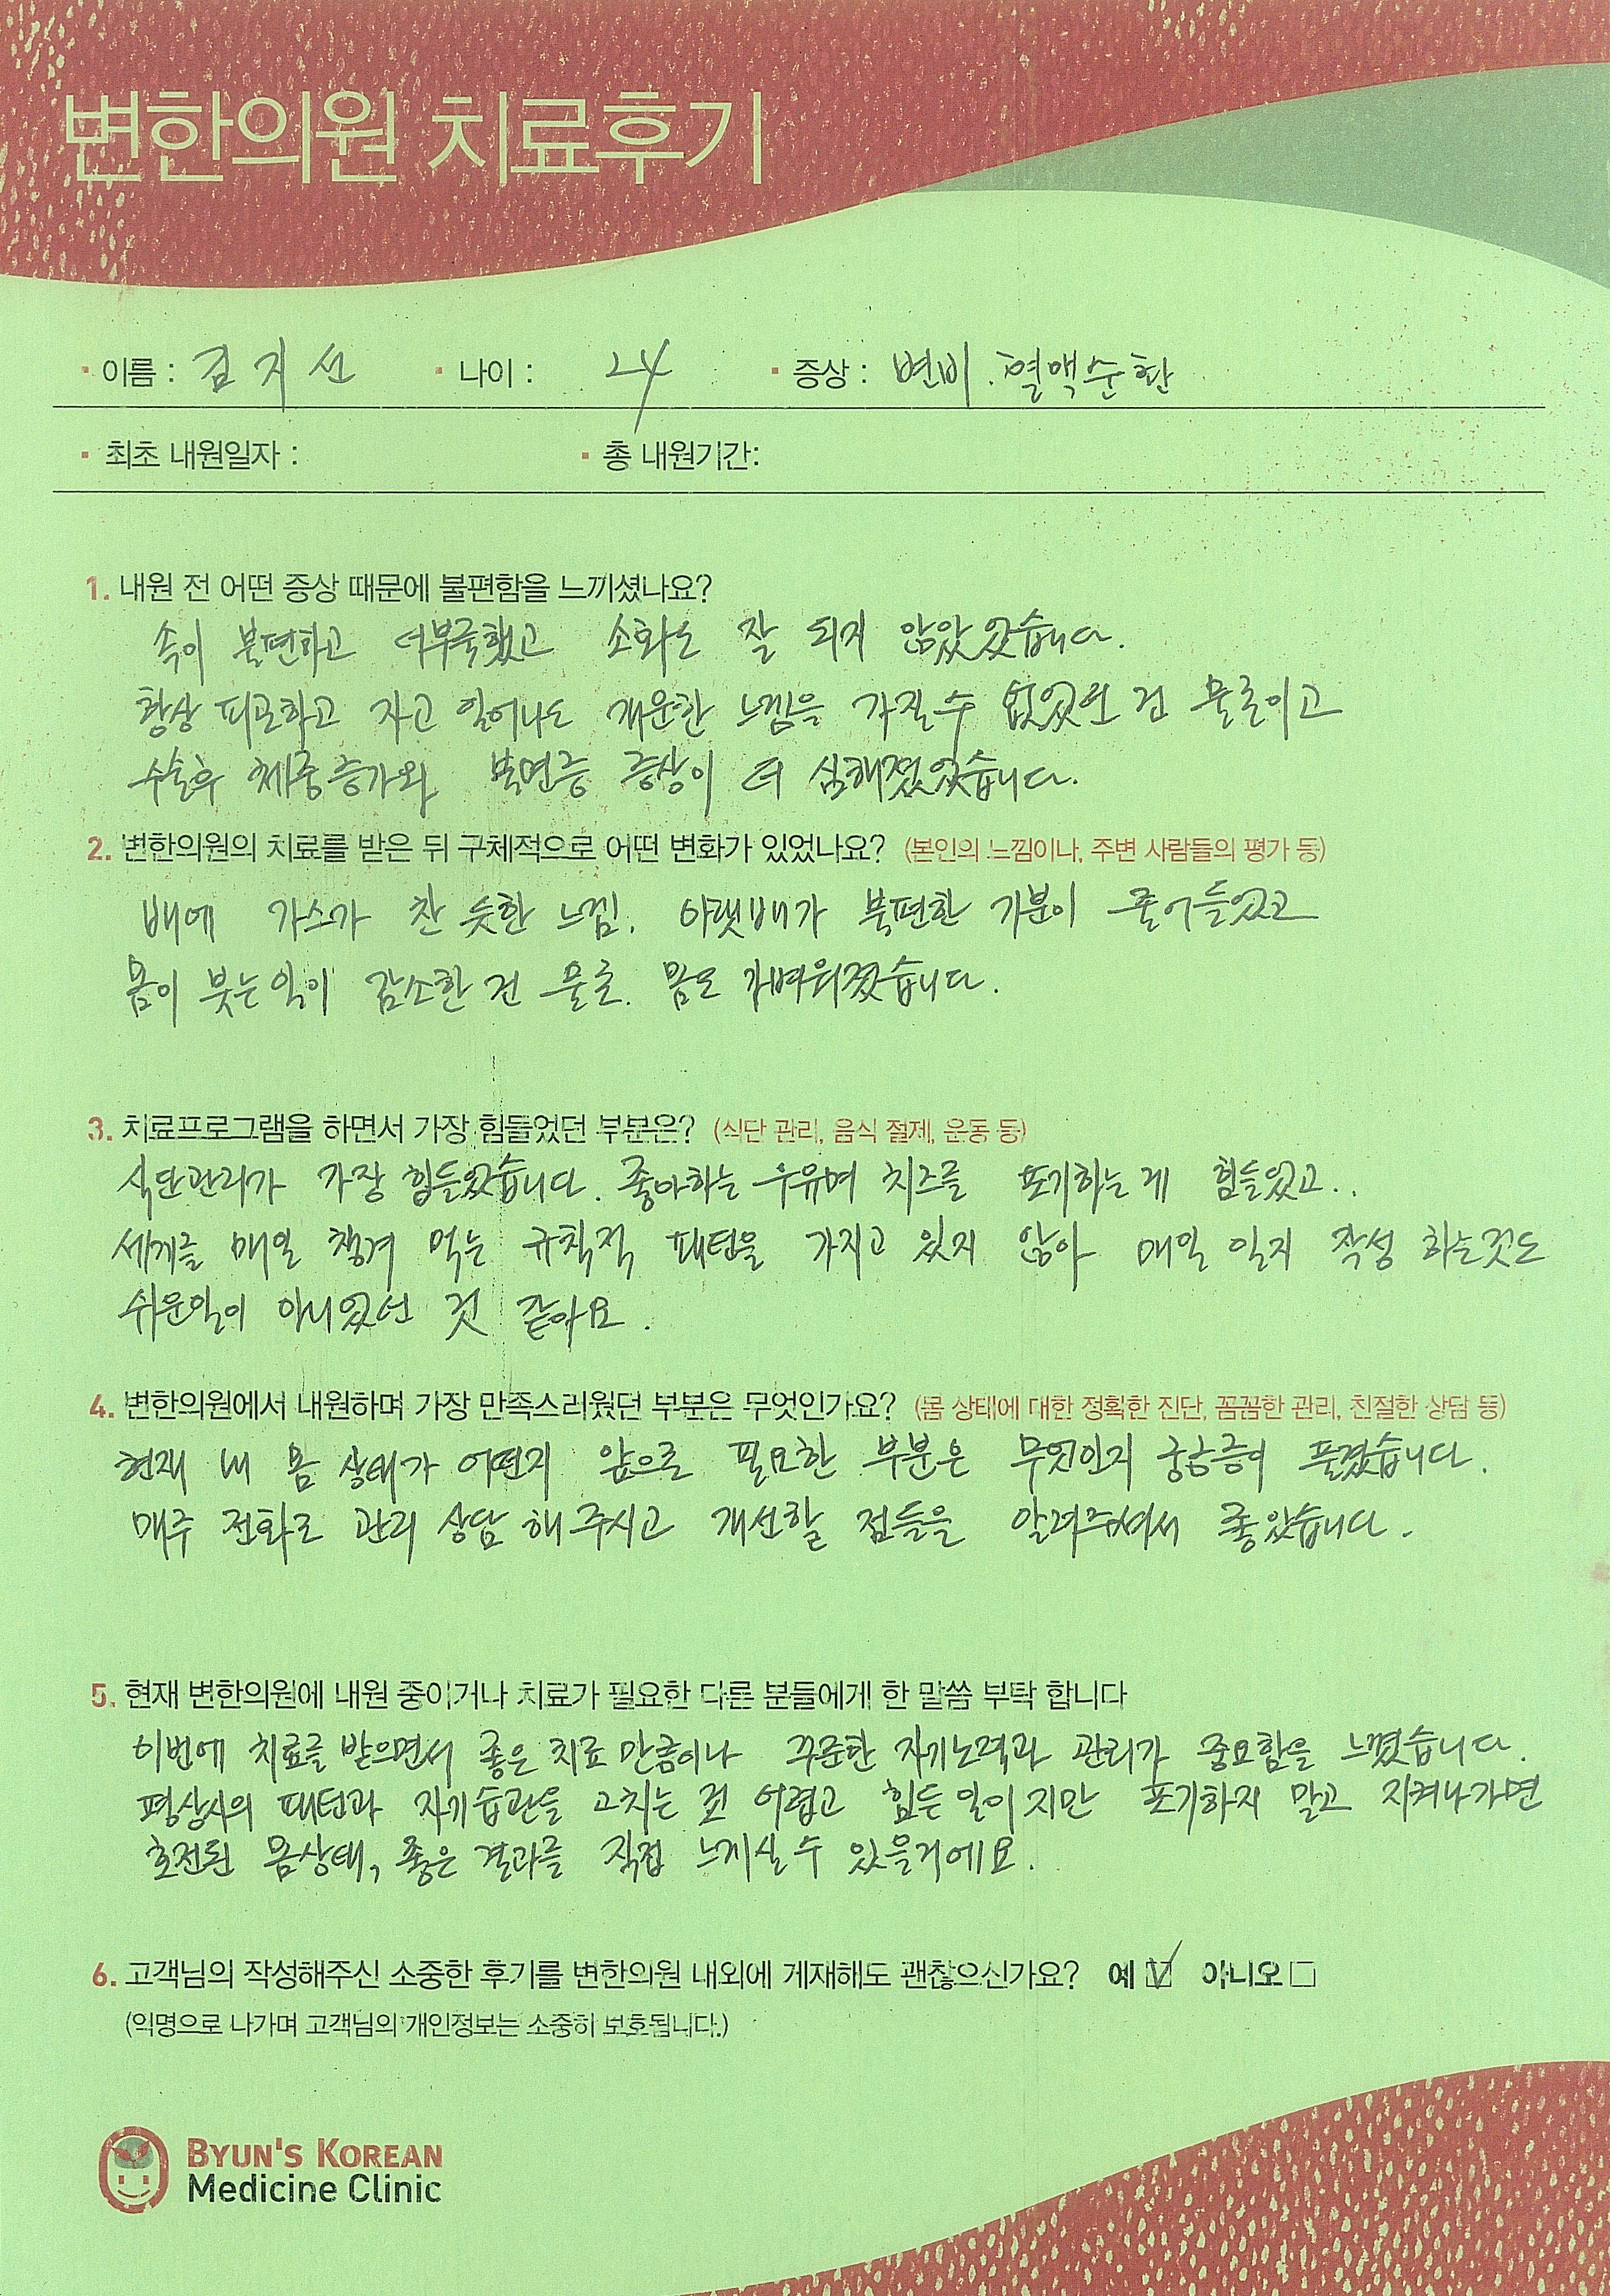 변한의원 치료후기
이름 : 김지선 나이 : 24 증상 : 변비. 혈액순환
최초 내원일자 : 총 내원기간:
1. 내원 전 어떤 증상 때문에 불편함을 느끼셨나요?
속이 불편하고 더부룩했고 소화도 잘 되지 않았었습니다.
항상 피곤하고 자고 일어나도 개운한 느낌을 가질수 없었던 건 물론이고
수술후 체중증가와 불면증 증상이 더 심해졌었습니다.
2. 변한의원의 치료를 받은 뒤 구체적으로 어떤 변화가 있었나요? (본인의 느낌이나, 주변 사람들의 평가 등)
배에 가스가 찬 듯한 느낌. 아랫배가 불편한 기분이 줄어들었고
몸이 붓는일이 감소한 건 물론. 몸도 가벼워졌습니다.
3. 치료프로그램을 하면서 가장 힘들었던 부분은? (식단 관리, 음식 절제, 운동 등)
식단관리가 가장 힘들었습니다. 좋아하는 우유며 치즈를 포기하는게 힘들었고..
세끼를 매일 챙겨 먹는 규칙적 패턴을 가지고 있지 않아 매일 일지 작성 하는것도
쉬운일이 아니었던 것 같아요.
4. 변한의원에서 내원하며 가장 만족스러웠던 부분은 무엇인가요? (몸 상태에 대한 정확한 진단, 꼼꼼한 관리, 친절한 상담 등)
현재 내 몸 상태가 어떤지 앞으로 필요한 부분은 무엇인지 궁금증이 풀렸습니다.
매주 전화로 관리 상담 해주시고 개선할 점들을 알려주셔서 좋았습니다.
5. 현재 변한의원에 내원 중이거나 치료가 필요한 다른 분들에게 한 말씀 부탁 합니다
이번에 치료를 받으면서 좋은 치료 만큼이나 꾸준한 자기노력과 관리가 중요함을 느꼈습니다.
평상시의 패턴과 자기습관을 고치는 것 어렵고 힘든 일이지만 포기하지 말고 지켜나가면
호전된 몸상태, 좋은 결과를 직접 느끼실수 있을거에요.
6. 고객님의 작성해주신 소중한 후기를 변한의원 내외에 게재해도 괜찮으신가요? 예 ☑ 아니오 □
(익명으로 나가며 고객님의 개인정보는 소중히 보호됩니다.)
BYUN'S KOREAN
Medicine Clinic